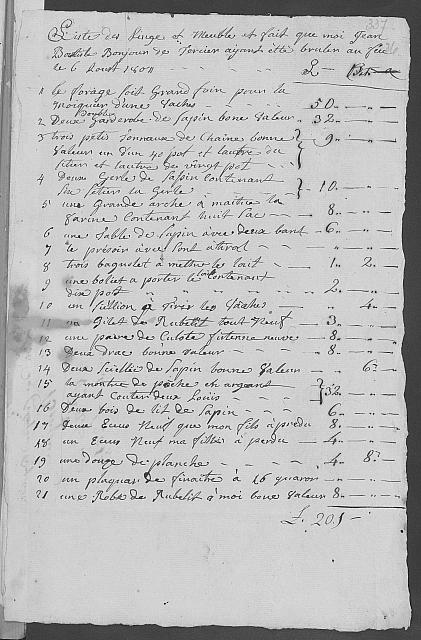 Liste des Linge et Meuble et fait que moi Jean
Batiste Bonjour de Tercier ayant etté bruler au feu
le 6 Aout 180 L -
1 le forage soit Grand foin pour la
moiquer d'une Vaches - 50 " - " -
Double
2 Deux garderobe de Sapin bone Valeur - 32 " - " -
3 trois petis Tonnaux de Chaine bonne
Valeur un d'un 40 pot et lautre du
setier et lautre de vingt pot - 9 " - " -
4 Deux Gerle de Sapin contenant
setier la Gerle - 10 " - " -
5 une Grande arche a maitre la
farine contenant huit Sac - 8 " - " -
6 une Table de Sapin avec deux bant - 6 " - " -
7 le presoir avec Sont - " - " -
8 trois bagnolet a mettre le lait - 1 " 2 " -
9 une a porter le lait contenant
dix pot - 2 " - " -
10 un a Tirer les Vaches - " 4 " -
11 un Gilet de Rubelit tout Neuf - 3 " - " -
12 une paire de Culote neuve - 8 " - " -
13 Deux Drac bonne Valeur - 8 " - " -
14 Deux Seillie de Sapin bonne Valeur - " 6 " -
15 la montre de poche en argeant
ayant Couter deux Loüis - 32 " - " -
16 Deux bois de lit de Sapin - 6 " - " -
17 Deux Ecus Neuf que mon fils á predu 8 " - " -
18 un Ecus Neuf ma fillie á perdu - 4 " - " -
19 une de planche - 4 " 8 " -
20 un de á 16 - " - " -
21 une Robe de Rubelit á moi bone Valeur 8 " - " -
L. 201 -